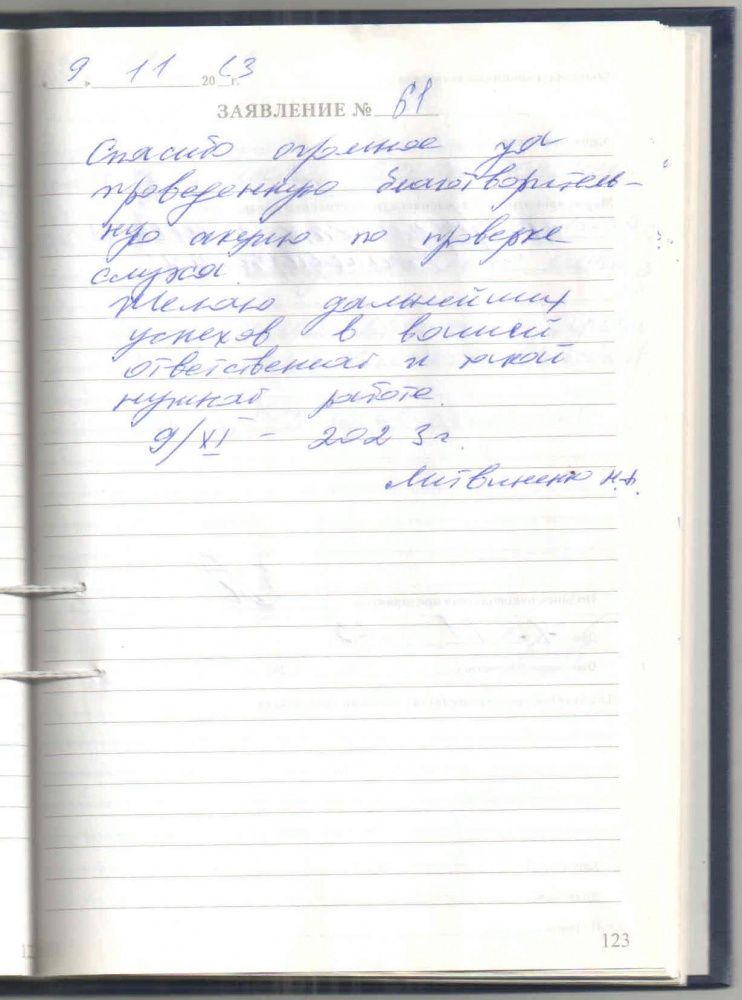 « 9 » 11 2023 г.
ЗАЯВЛЕНИЕ № 61
Спасибо огромное за
проведенную благотворитель-
ную акцию по проверке
слуха.
Желаю дальнейших
успехов в вашей
ответственной и такой
нужной работе.
9/XI - 2023 г.
Литвиненко Н.А.
123